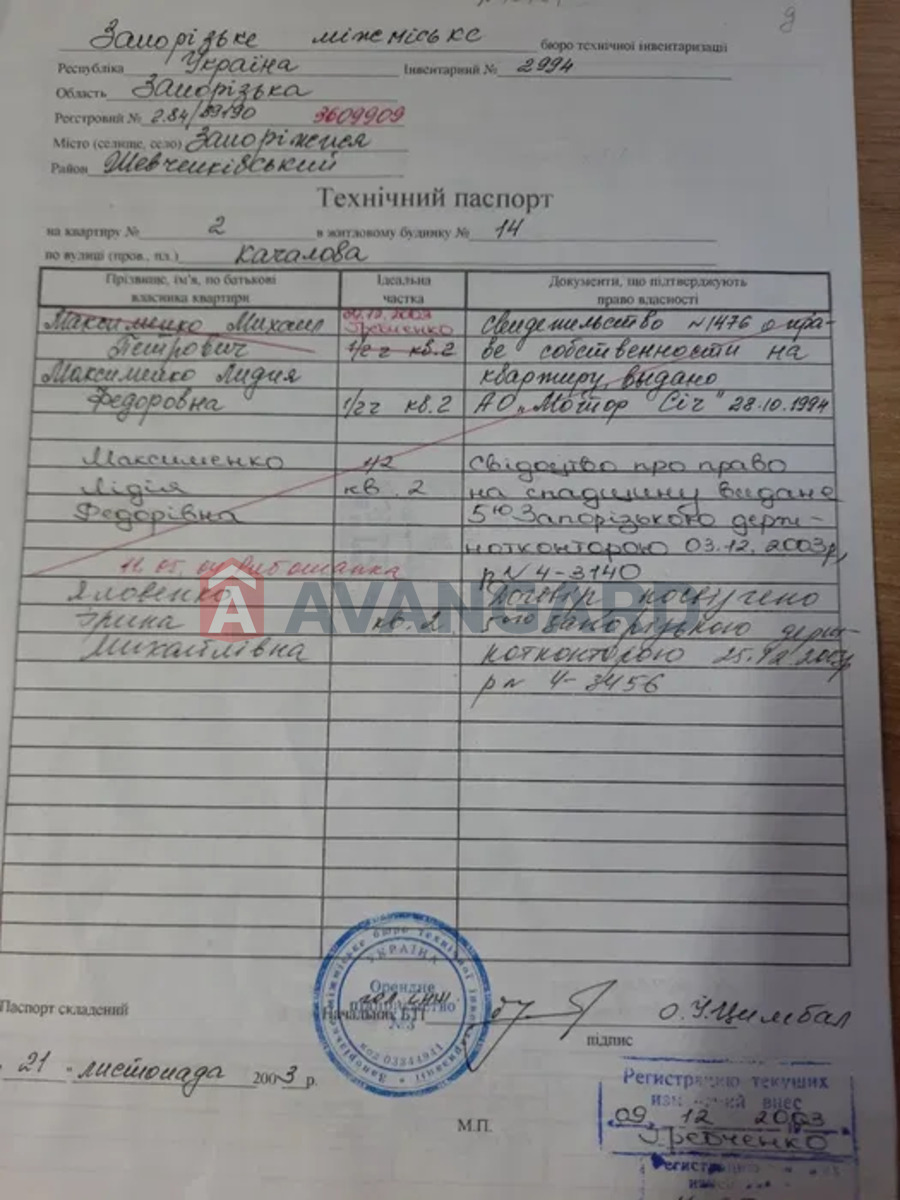 Запорізьке міжміське бюро технічної інвентаризації
Республіка Україна Інвентарний № 2994
Область Запорізька
Реєстровий № 284/89190 3609909
Місто (селище, село) Запоріжжя
Район Шевченківський
Технічний паспорт
на квартиру № 2 в житловому будинку № 14
по вулиці (пров., пл.) Качалова
Прізвище, ім'я, по батькові власника квартири
Ідеальна частка
Документи, що підтверджують право власності
09.12.2003
Максименко Михаил Гребченко Свидетельство №1476 о пра-
Петрович 1/2 ч кв.2 ве собственности на
Максименко Лидия квартиру выдано
Федоровна 1/2 ч кв.2 АО "Мотор Січ" 28.10.1994
Максименко 1/2 Свідоцтво про право
Лідія кв. 2 на спадщину видане
Федорівна 5ю Запорізькою держ-
нотконторою 03.12.2003р,
р№ 4-3140
Яловенко Договір посвідчено
Ірина кв. 2 5ою Запорізькою держ-
Михайлівна нотконторою
р№ 4-3456
AVANGARD
УКРАЇНА
Орендне підприємство №3
код 03344941
Паспорт складений Начальник БТІ О.У.Цимбал
підпис
21 листопада 2003 р.
М.П.
Регистрацию текущих
изменений внес
09. 12 2003
Гребченко